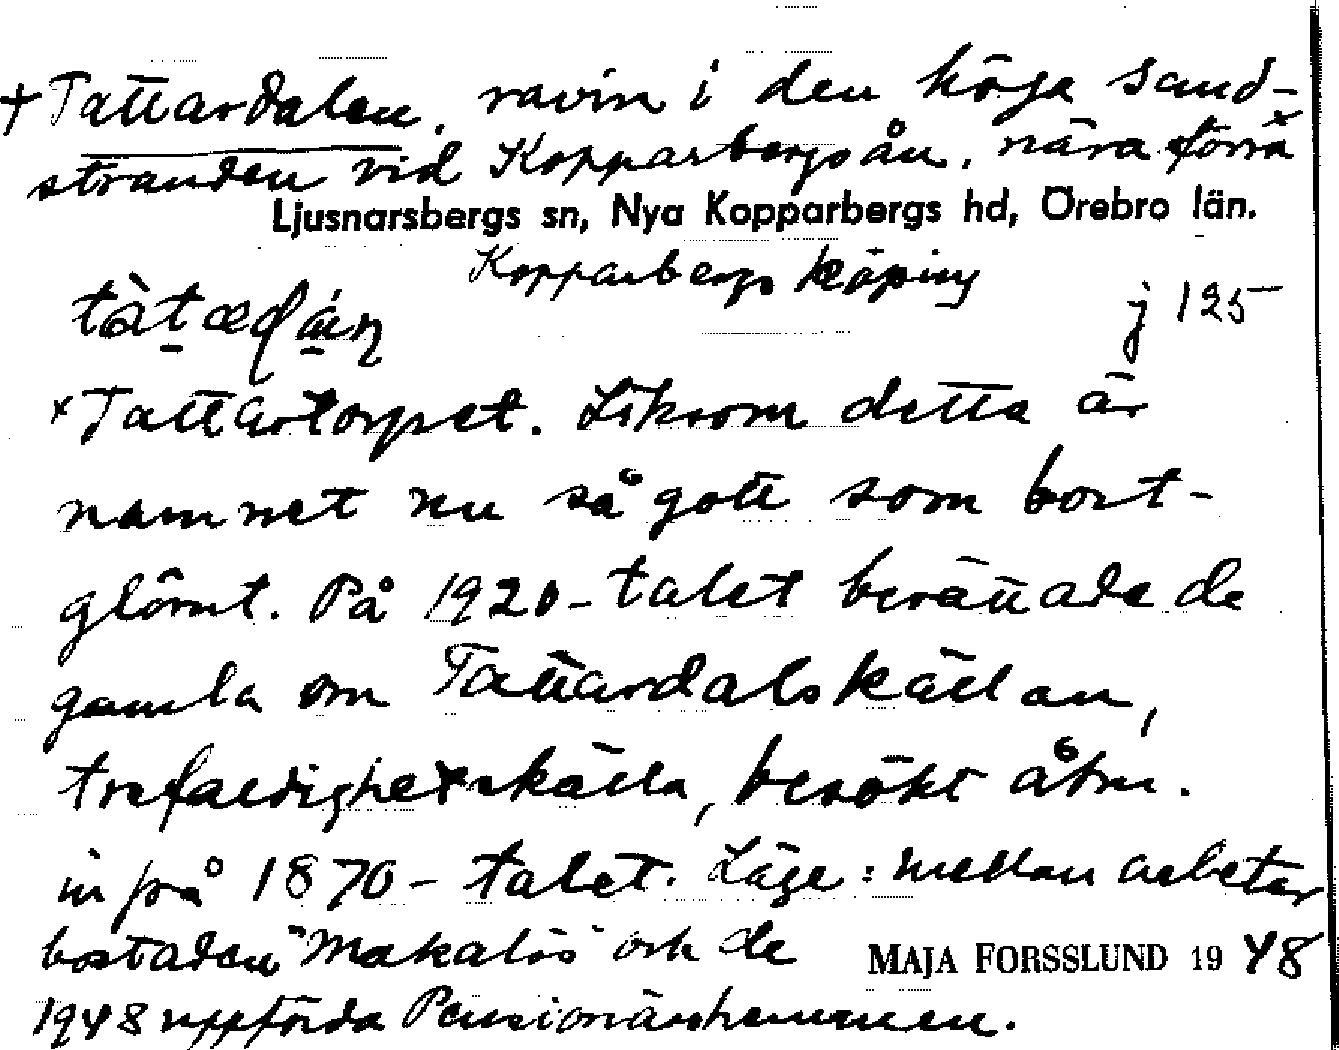 †Tattardalen, ravin i den höga sand-
stranden vid Kopparbergsån, nära förra
Ljusnarsbergs sn, Nya Kopparbergs hd, Örebro län.
Kopparbergs köping
j 125
ˣTattartorpet. Liksom detta är
namnet nu så gott som bort-
glömt. På 1920-talet berättade de
gamla om Tattardalskällan,
trefaldighetskälla, besökt åtm.
in på 1870-talet. Läge: mellan arbetar
bostaden "Makalös" och de
MAJA FORSSLUND 1948
1948 uppförda Pensionärshemmen.